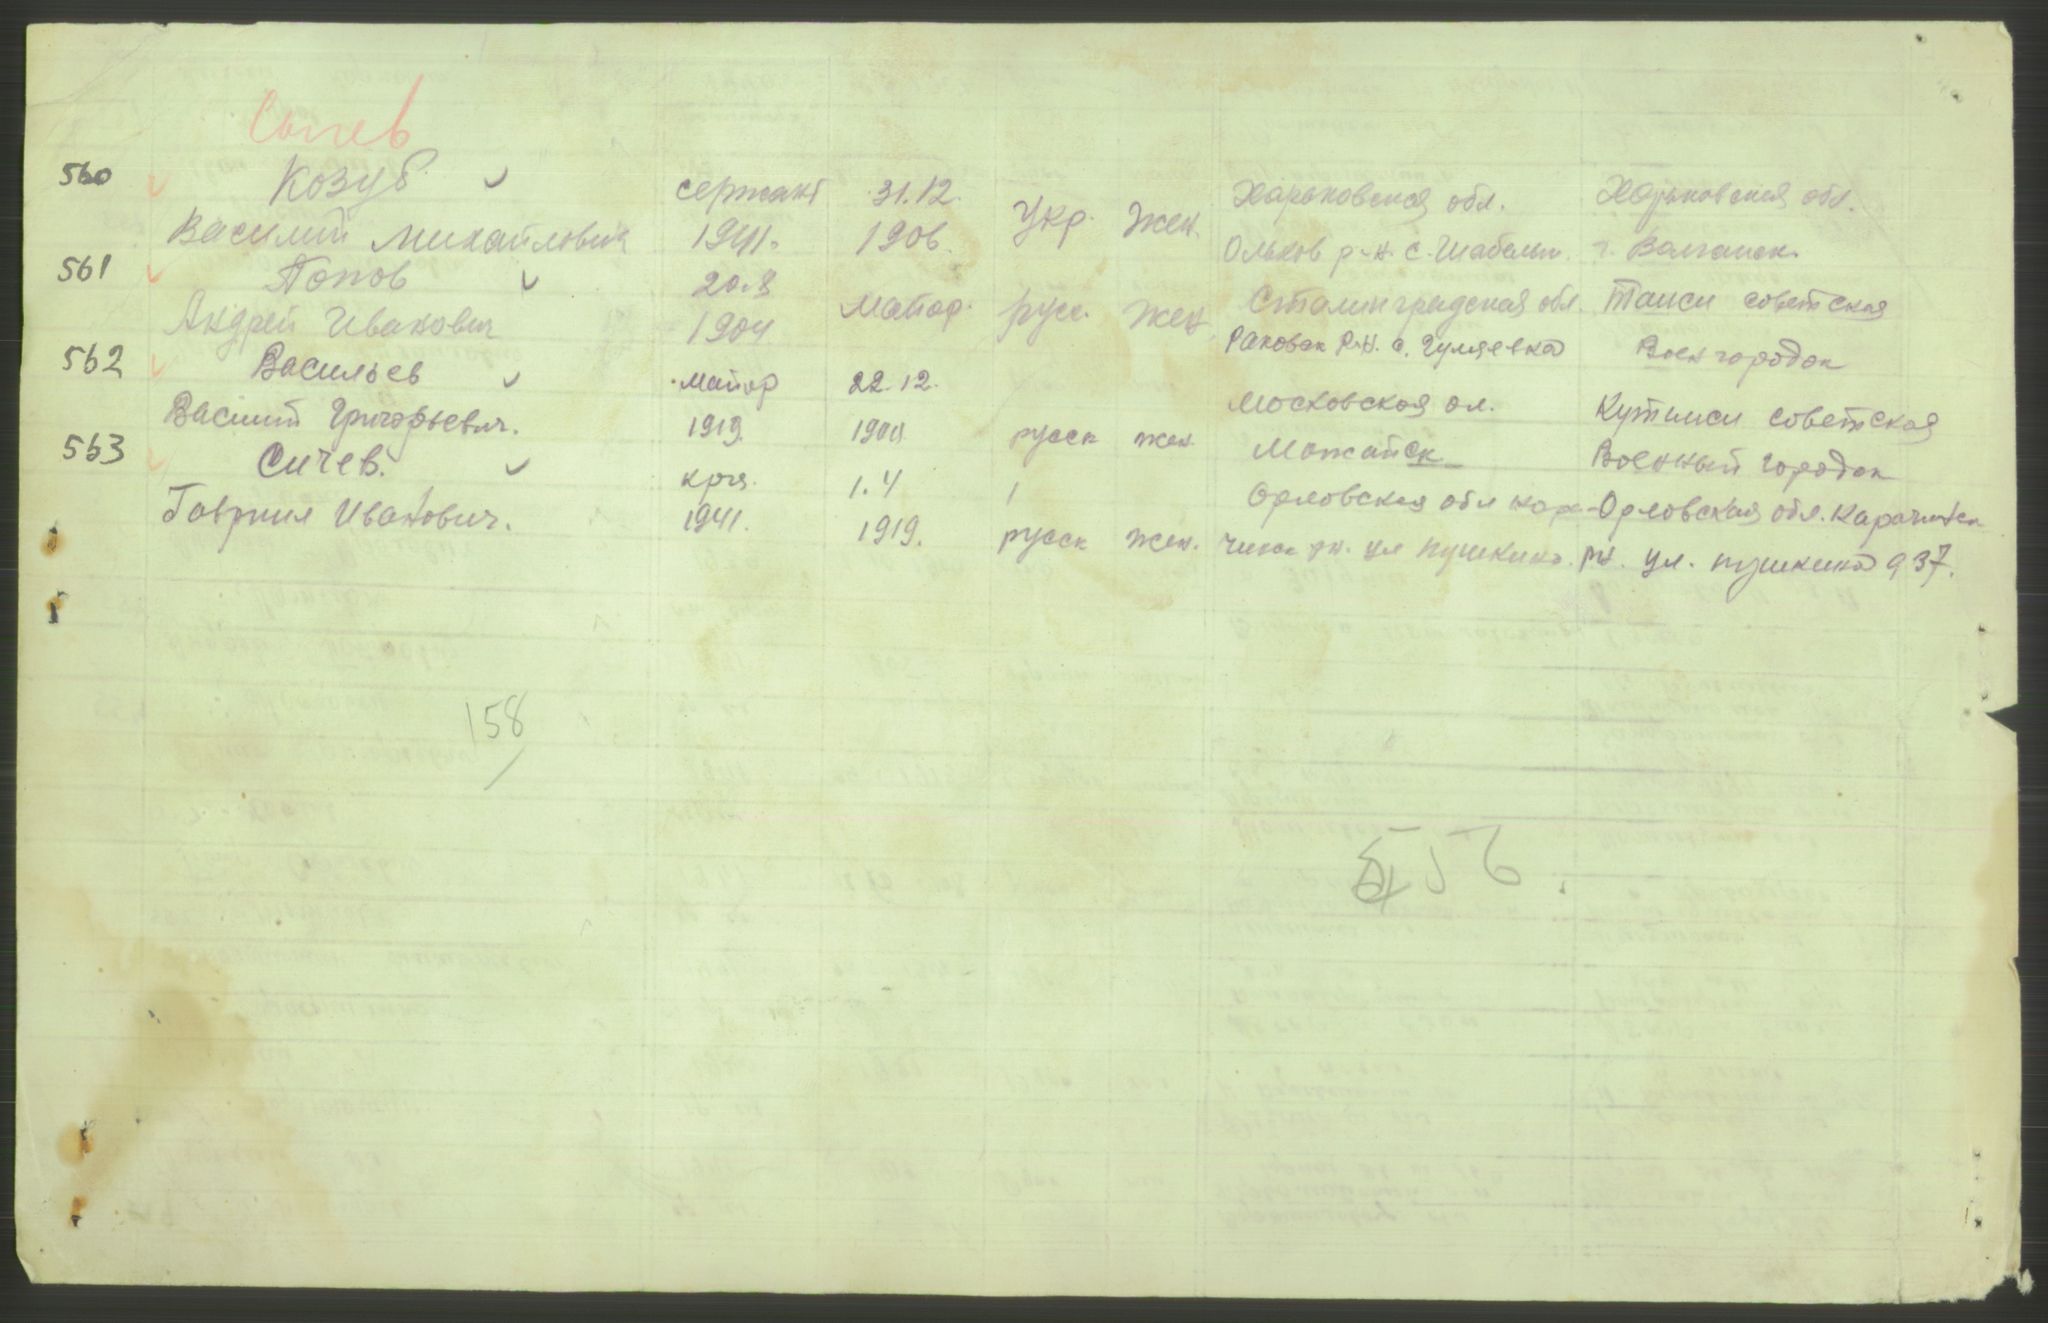 Сычев
560 Козуб сержант 31.12. Укр. Жен. Харьковская обл. Харьковская обл.
Василий Михайлович 1941. 1906. Ольхов р-н. с. г. Волчанск.
561 Попов 20.8 Майор. русс. Жен. Сталинградская обл. советская
Андрей Иванович 1904 р-н. с. Гуляевка Воен городок
562 Васильев майор 22.12. Московская ол. Кутписи советская
Василий Григорьевич. 1919. русск жен Можайск Военный городок
563 Сичев. 1.4 Орловская обл Орловская обл.
Гавриил Иванович. 1941. 1919. русск жен. рн. ул пушкина. рн. ул. пушкина 937.
158
556.